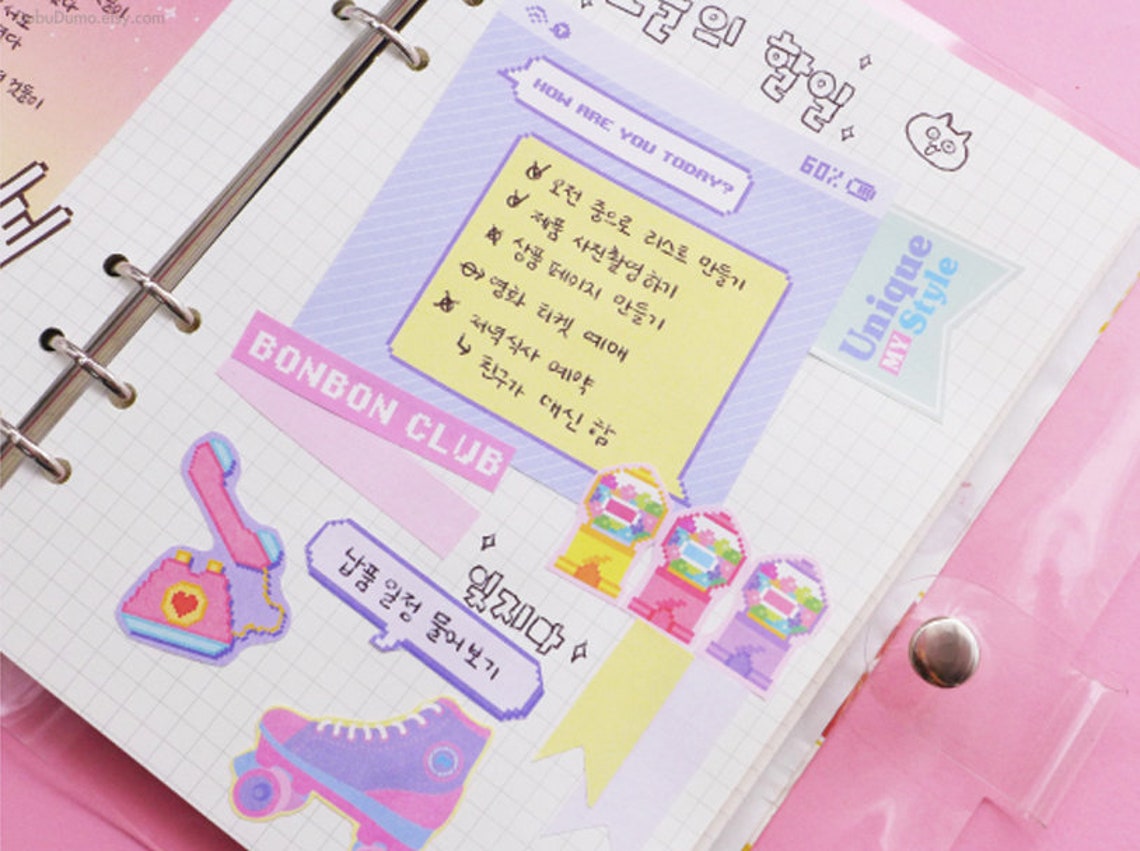 BubuDumo.etsy.com
오늘의 할일
HOW ARE YOU TODAY?
60%
오전 중으로 리스트 만들기
제품 사진촬영하기
상품페이지 만들기
영화 티켓 예매
저녁식사 예약
↳ 친구가 대신 함
Unique
MY Style
BONBON CLUB
납품일정 물어보기
웠지다